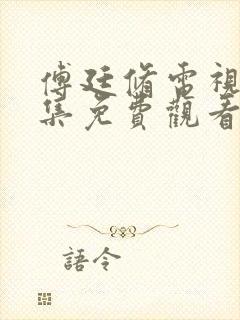 傅廷脩電視
集免費觀看
語令